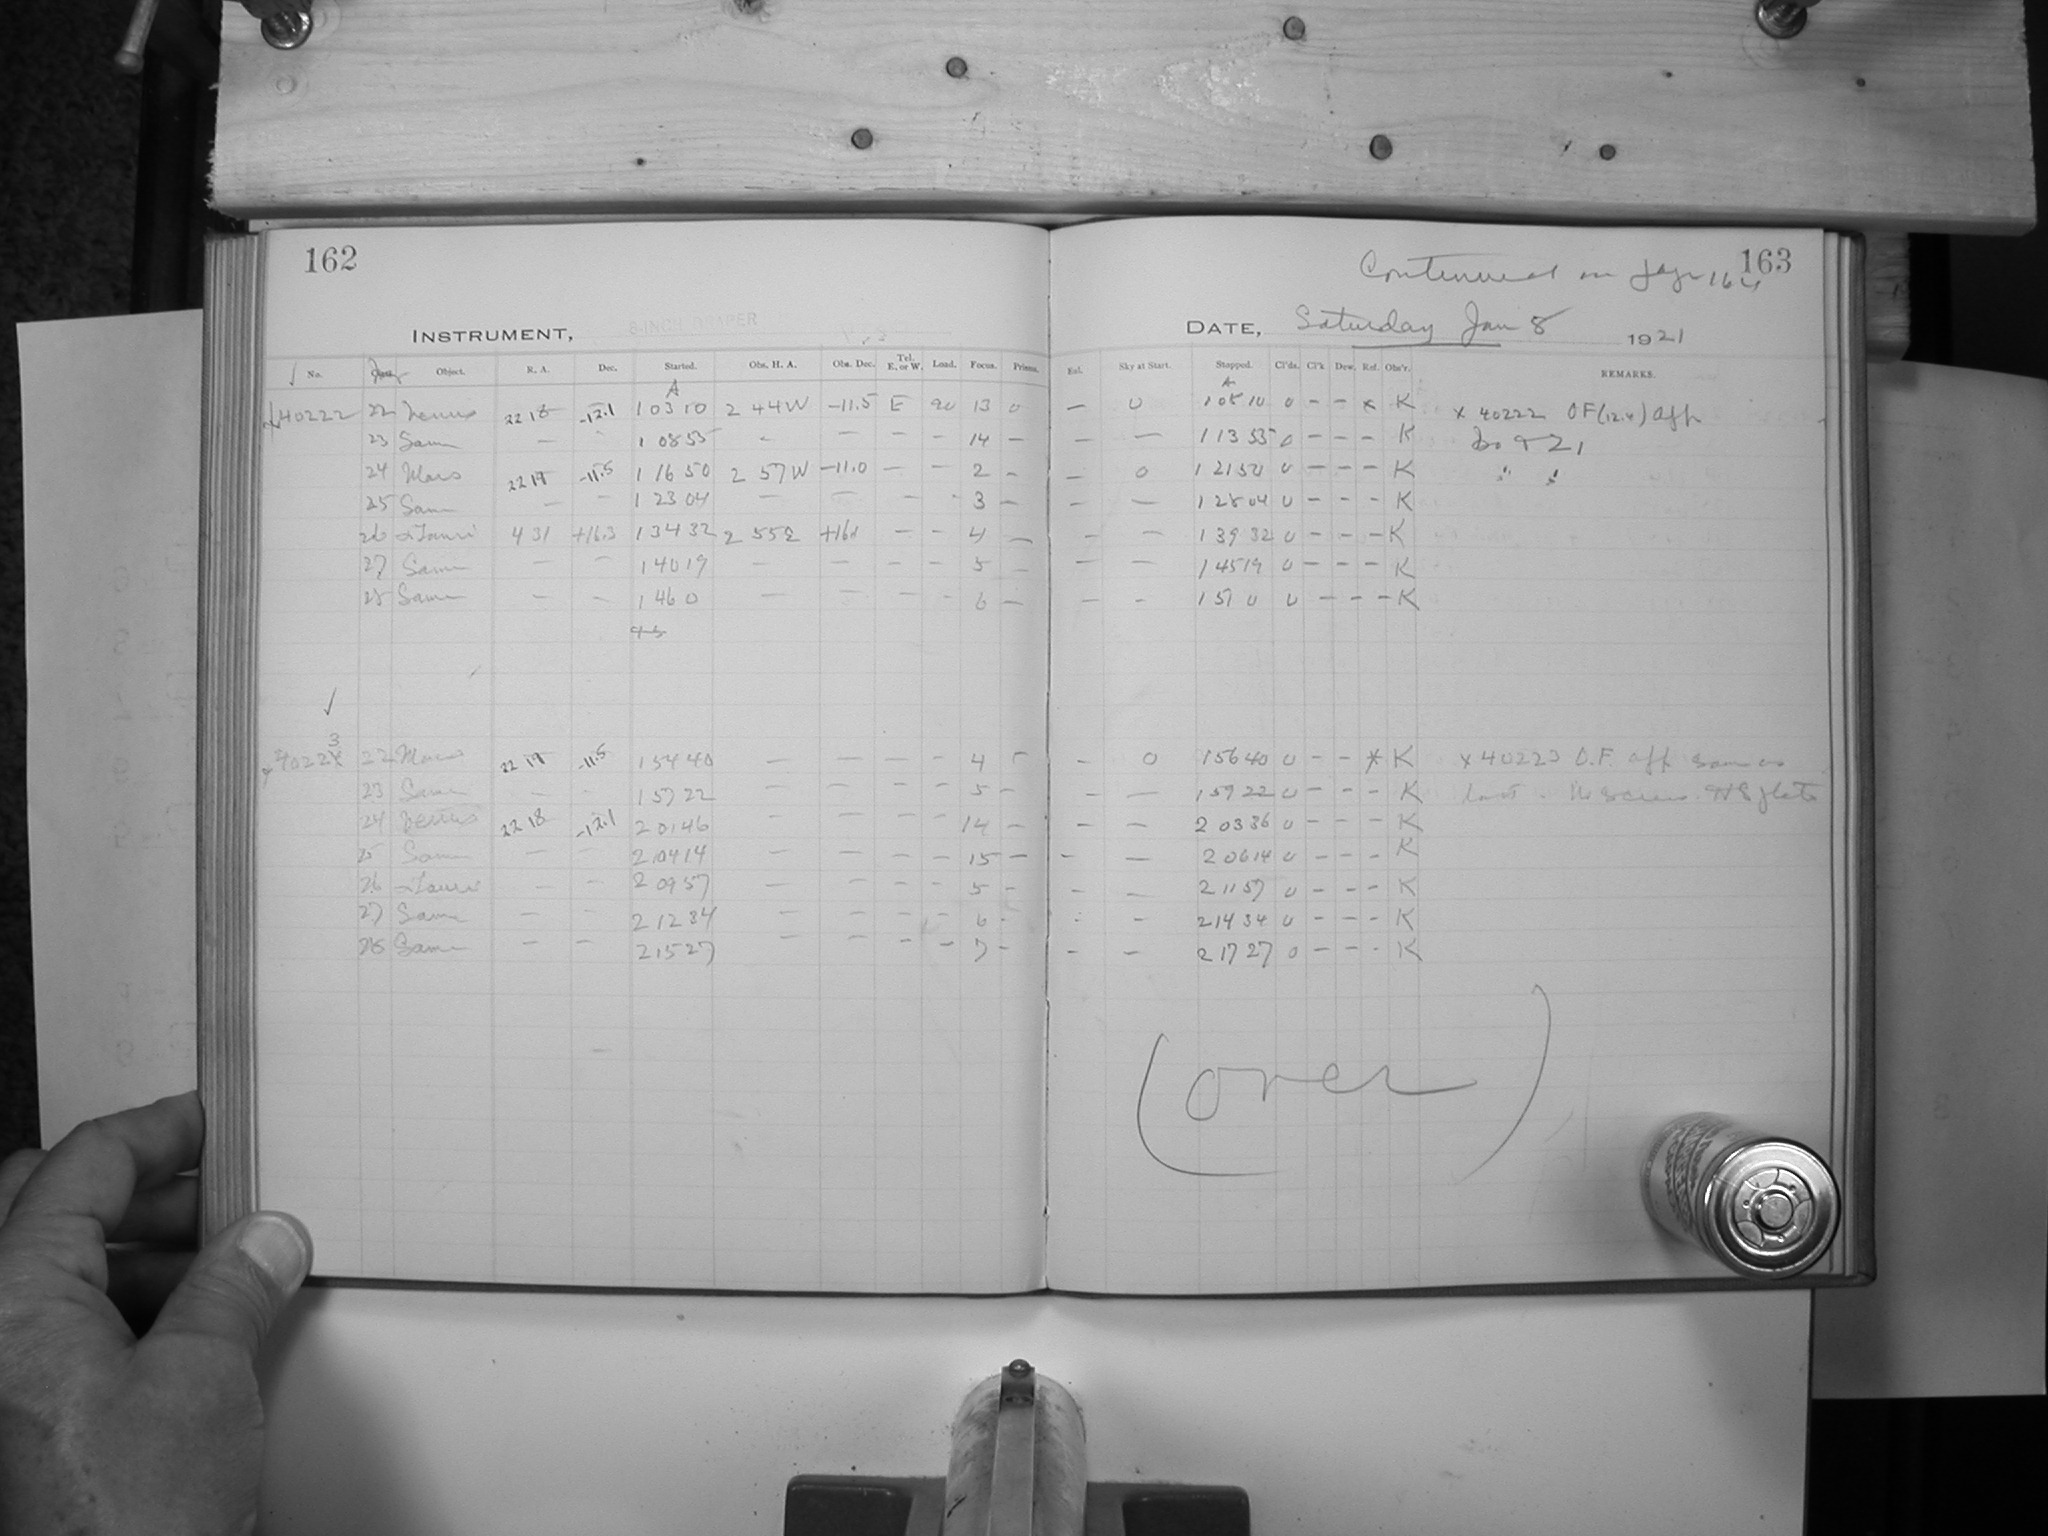 162
INSTRUMENT, 8-INCH DRAPER
No. Object. R. A. Dec. Started. Obs. H. A. Obs. Dec. Tel. E. or W. Load. Focus. Prisms.
A
40222 22 Venus 22 18 -12.1 1 03 10 2 44 W -11.5 E 90 13 0
23 Same — - 1 08 55 - — - - 14 —
24 Mars 22 19 -11.5 1 16 50 2 57 W -11.0 — — 2 -
25 Same — — 1 23 04 — — - - 3 —
26 α Tauri 4 31 +16.3 1 34 32 2 55 E +16 — — 4 —
27 Same — — 1 40 19 — — - - 5 —
28 Same — — 1 46 0 — — - - 6 —
3
4022 22 Mars 22 19 -11.5 1 54 40 — — - - 4 -
23 Same - - 1 57 22 — — - - 5 -
24 Venus 22 18 -12.1 2 01 46 — — - - 14 —
25 Same — — 2 04 14 — — — — 15 —
26 α Tauri — - 2 09 57 — — - - 5 -
27 Same — - 2 12 34 — — - 6 -
28 Same — — 2 15 27 — — - - 7 -
Continued on page 164
163
DATE, Saturday Jan 8 1921
Exl. Sky at Start. Stopped. Cl'ds. Cl'k Dew. Ref. Obs'r. REMARKS.
A
— 0 1 08 10 0 - - x K x 40222 OF (12.4) Aff
— — 1 13 55 0 - - - K Do + 21
— 0 1 21 50 0 - - - K " "
- — 1 28 04 0 - - - K
— — 1 39 32 0 - - - K
— — 1 45 19 0 - - - K
— - 1 51 0 0 - - - K
- 0 1 56 40 0 - - * K x 40223 O.F. Aff same as
- — 1 59 22 0 - - - K last. No screen.
— — 2 03 36 0 - - - K
- — 2 06 14 0 - - - K
- — 2 11 57 0 - - - K
- - 2 14 34 0 - - - K
- — 2 17 27 0 - - - K
(over)